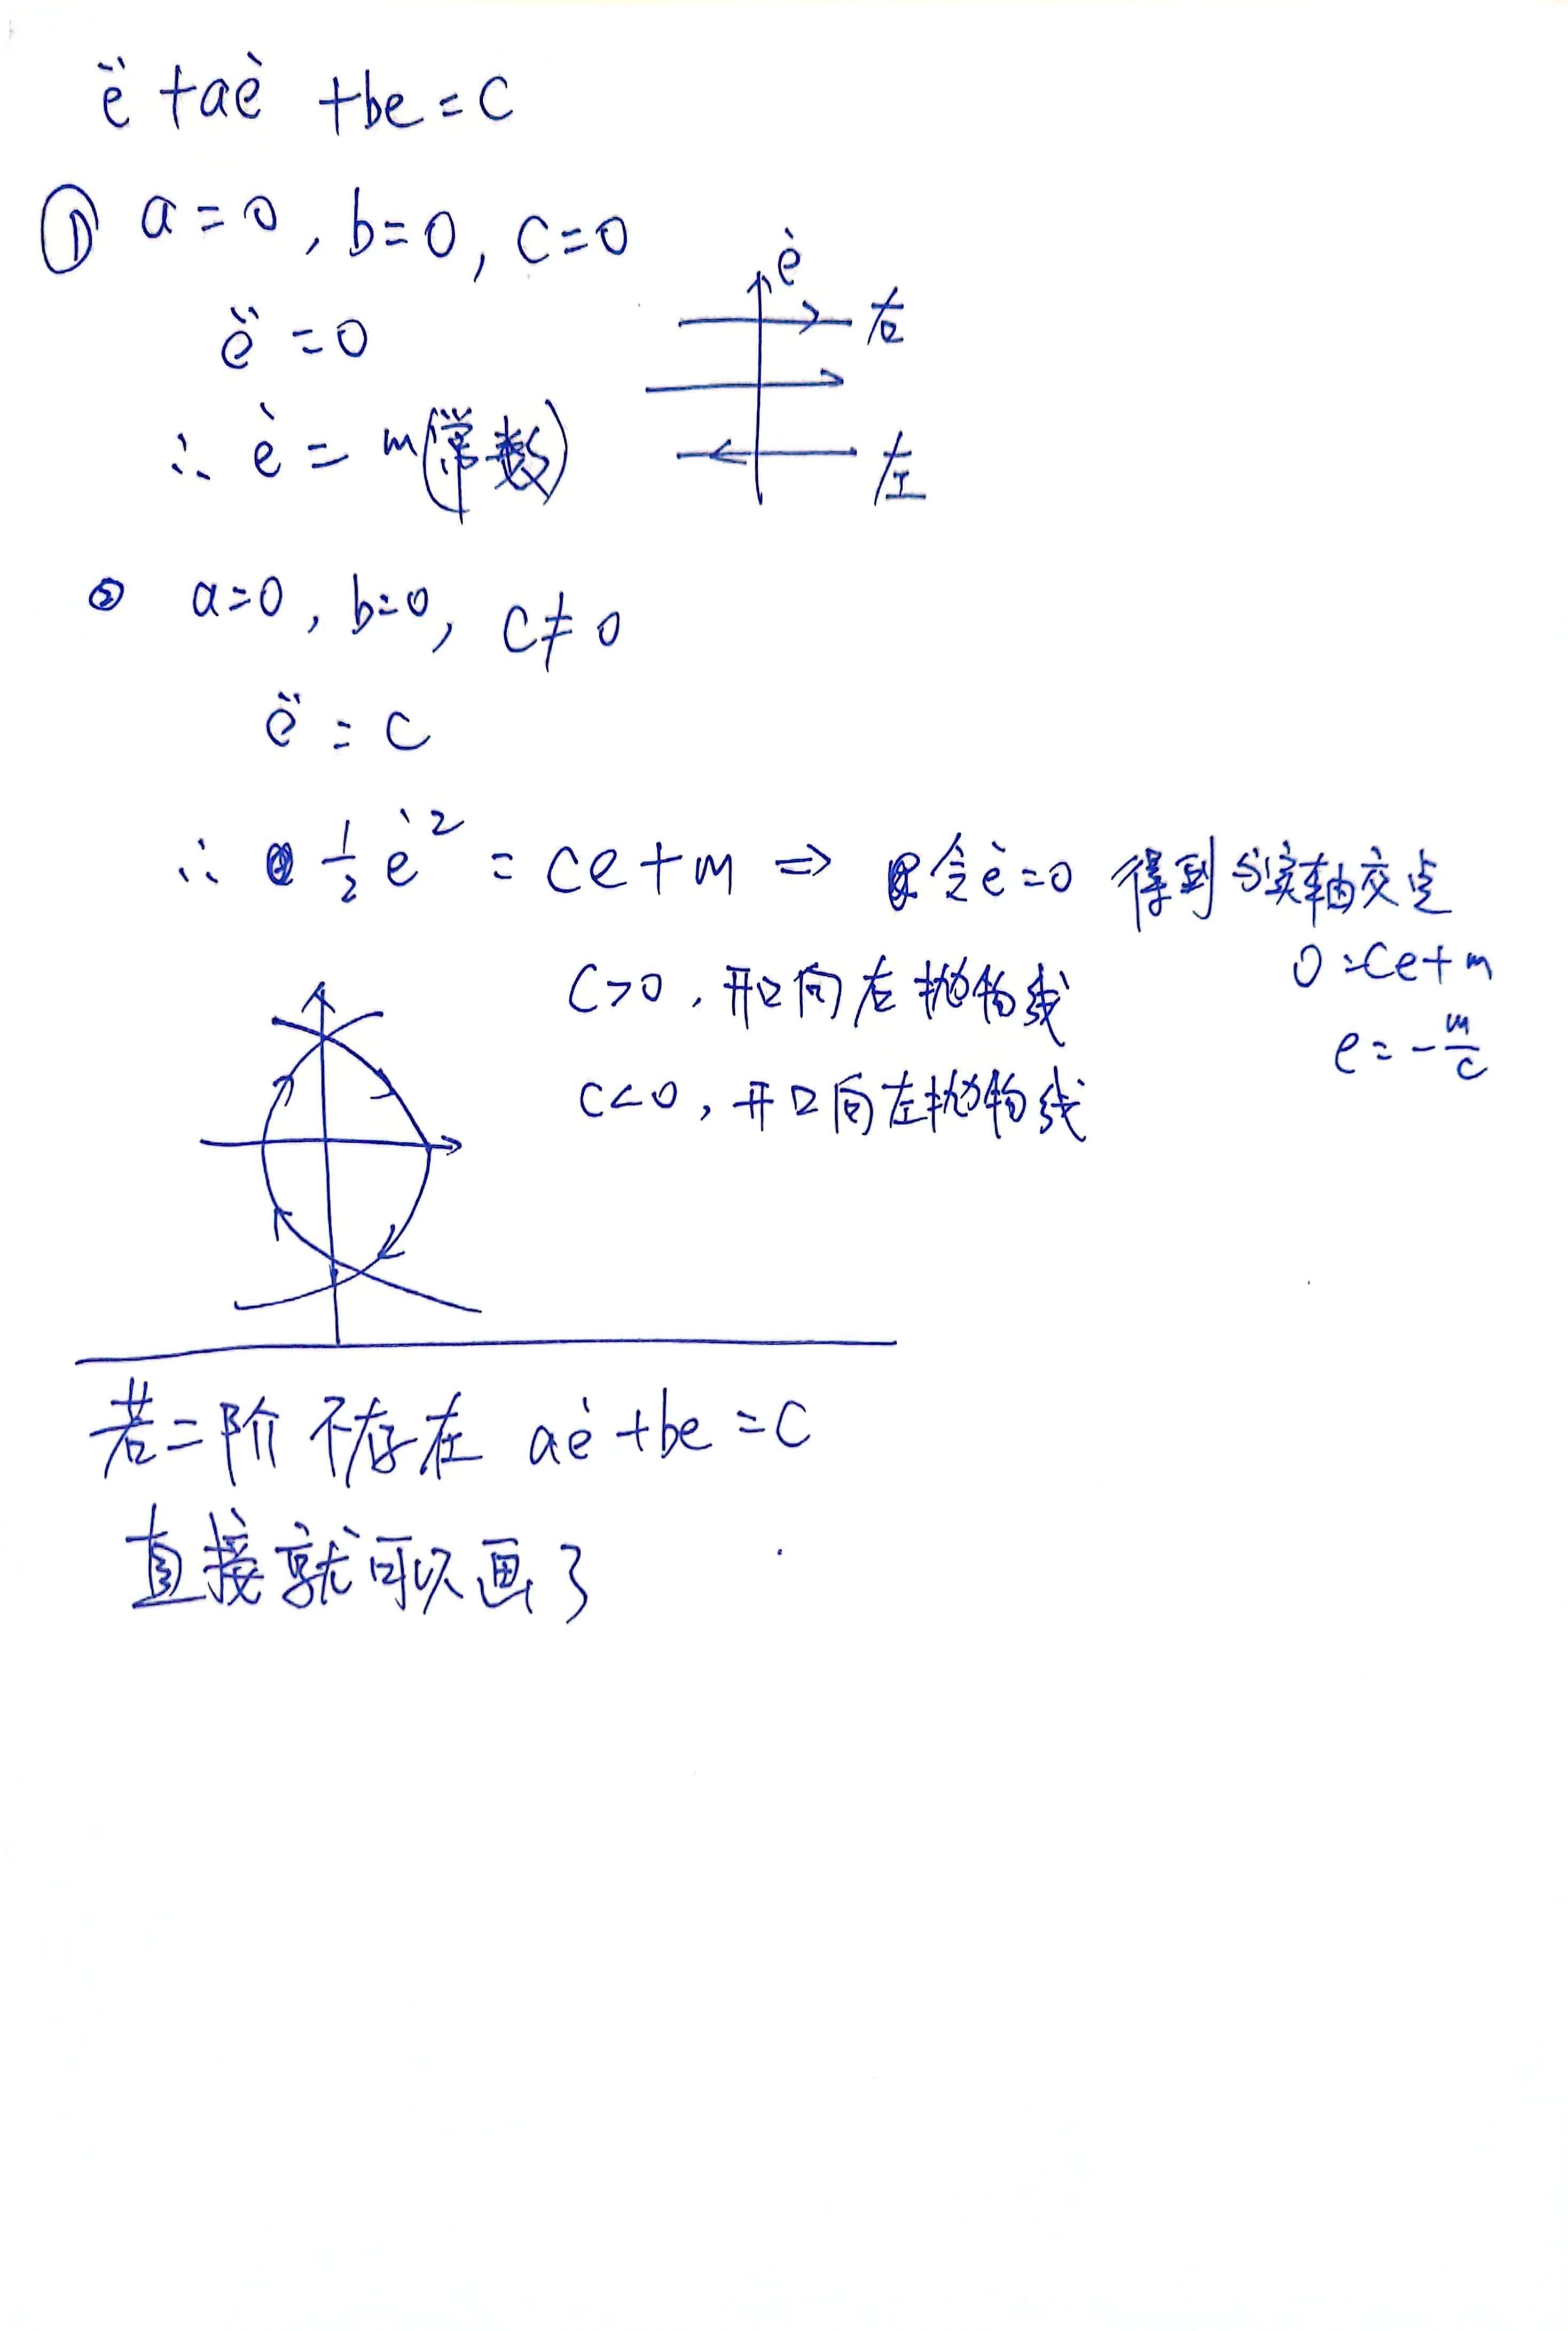 ë + aė + be = c
① a = 0, b = 0, c = 0
ë = 0
∴ ė = m(常数)
ė
右
左
② a=0, b=0, c ≠ 0
ë = c
∴ ½ ė² = ce + m ⇒ 令ė=0 得到与实轴交点
0 = ce + m
e = -m/c
c>0, 开口向右抛物线
c<0, 开口向左抛物线
若二阶不存在 aė + be = c
直接就可以画了